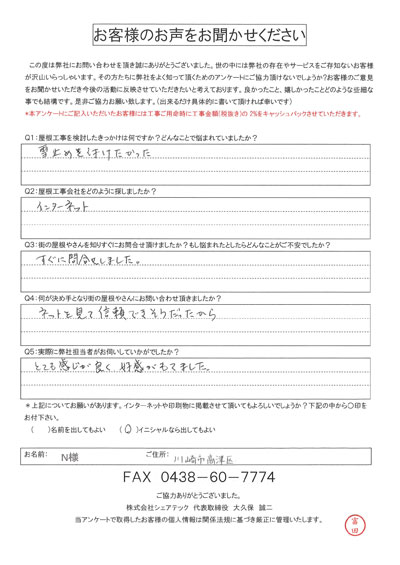 お客様のお声をお聞かせください
この度は弊社にお問い合わせを頂き誠にありがとうございました。世の中には弊社の存在やサービスをご存知ないお客様
が沢山いらっしゃいます。その方たちに弊社をよく知って頂くためのアンケートにご協力頂けないでしょうか?お客様のご意見
をお聞かせいただき今後の活動に反映させていただきたいと考えております。良かったこと、嬉しかったことどのような些細な
事でも結構です。是非ご協力お願い致します。(出来るだけ具体的に書いて頂ければ幸いです)
*本アンケートにご記入いただいたお客様には工事ご用命時にて工事金額(税抜き)の2%をキャッシュバックさせていただきます。
Q1:屋根工事を検討したきっかけは何ですか?どんなことで悩まれていましたか?
雪止めを付けたかった
Q2:屋根工事会社をどのように探しましたか?
インターネット
Q3:街の屋根やさんを知りすぐにお問合せ頂けましたか?もし悩まれたとしたらどんなことがご不安でしたか?
すぐに問合せしました。
Q4:何が決め手となり街の屋根やさんにお問い合わせ頂きましたか?
ネットを見て信頼できそうだったから
Q5:実際に弊社担当者がお伺いしていかがでしたか?
とても感じが良く 好感がもてました。
*上記についてお願いがあります。インターネットや印刷物に掲載させて頂いてもよろしいでしょうか?下記の中から〇印を
お付下さい。
( )名前を出してもよい (〇)イニシャルなら出してもよい
お名前: N様 ご住所: 川崎市高津区
FAX 0438-60-7774
ご協力ありがとうございました。
株式会社シェアテック 代表取締役 大久保 誠二
当アンケートで取得したお客様の個人情報は関係法規に基づき厳正に管理いたします。
富田